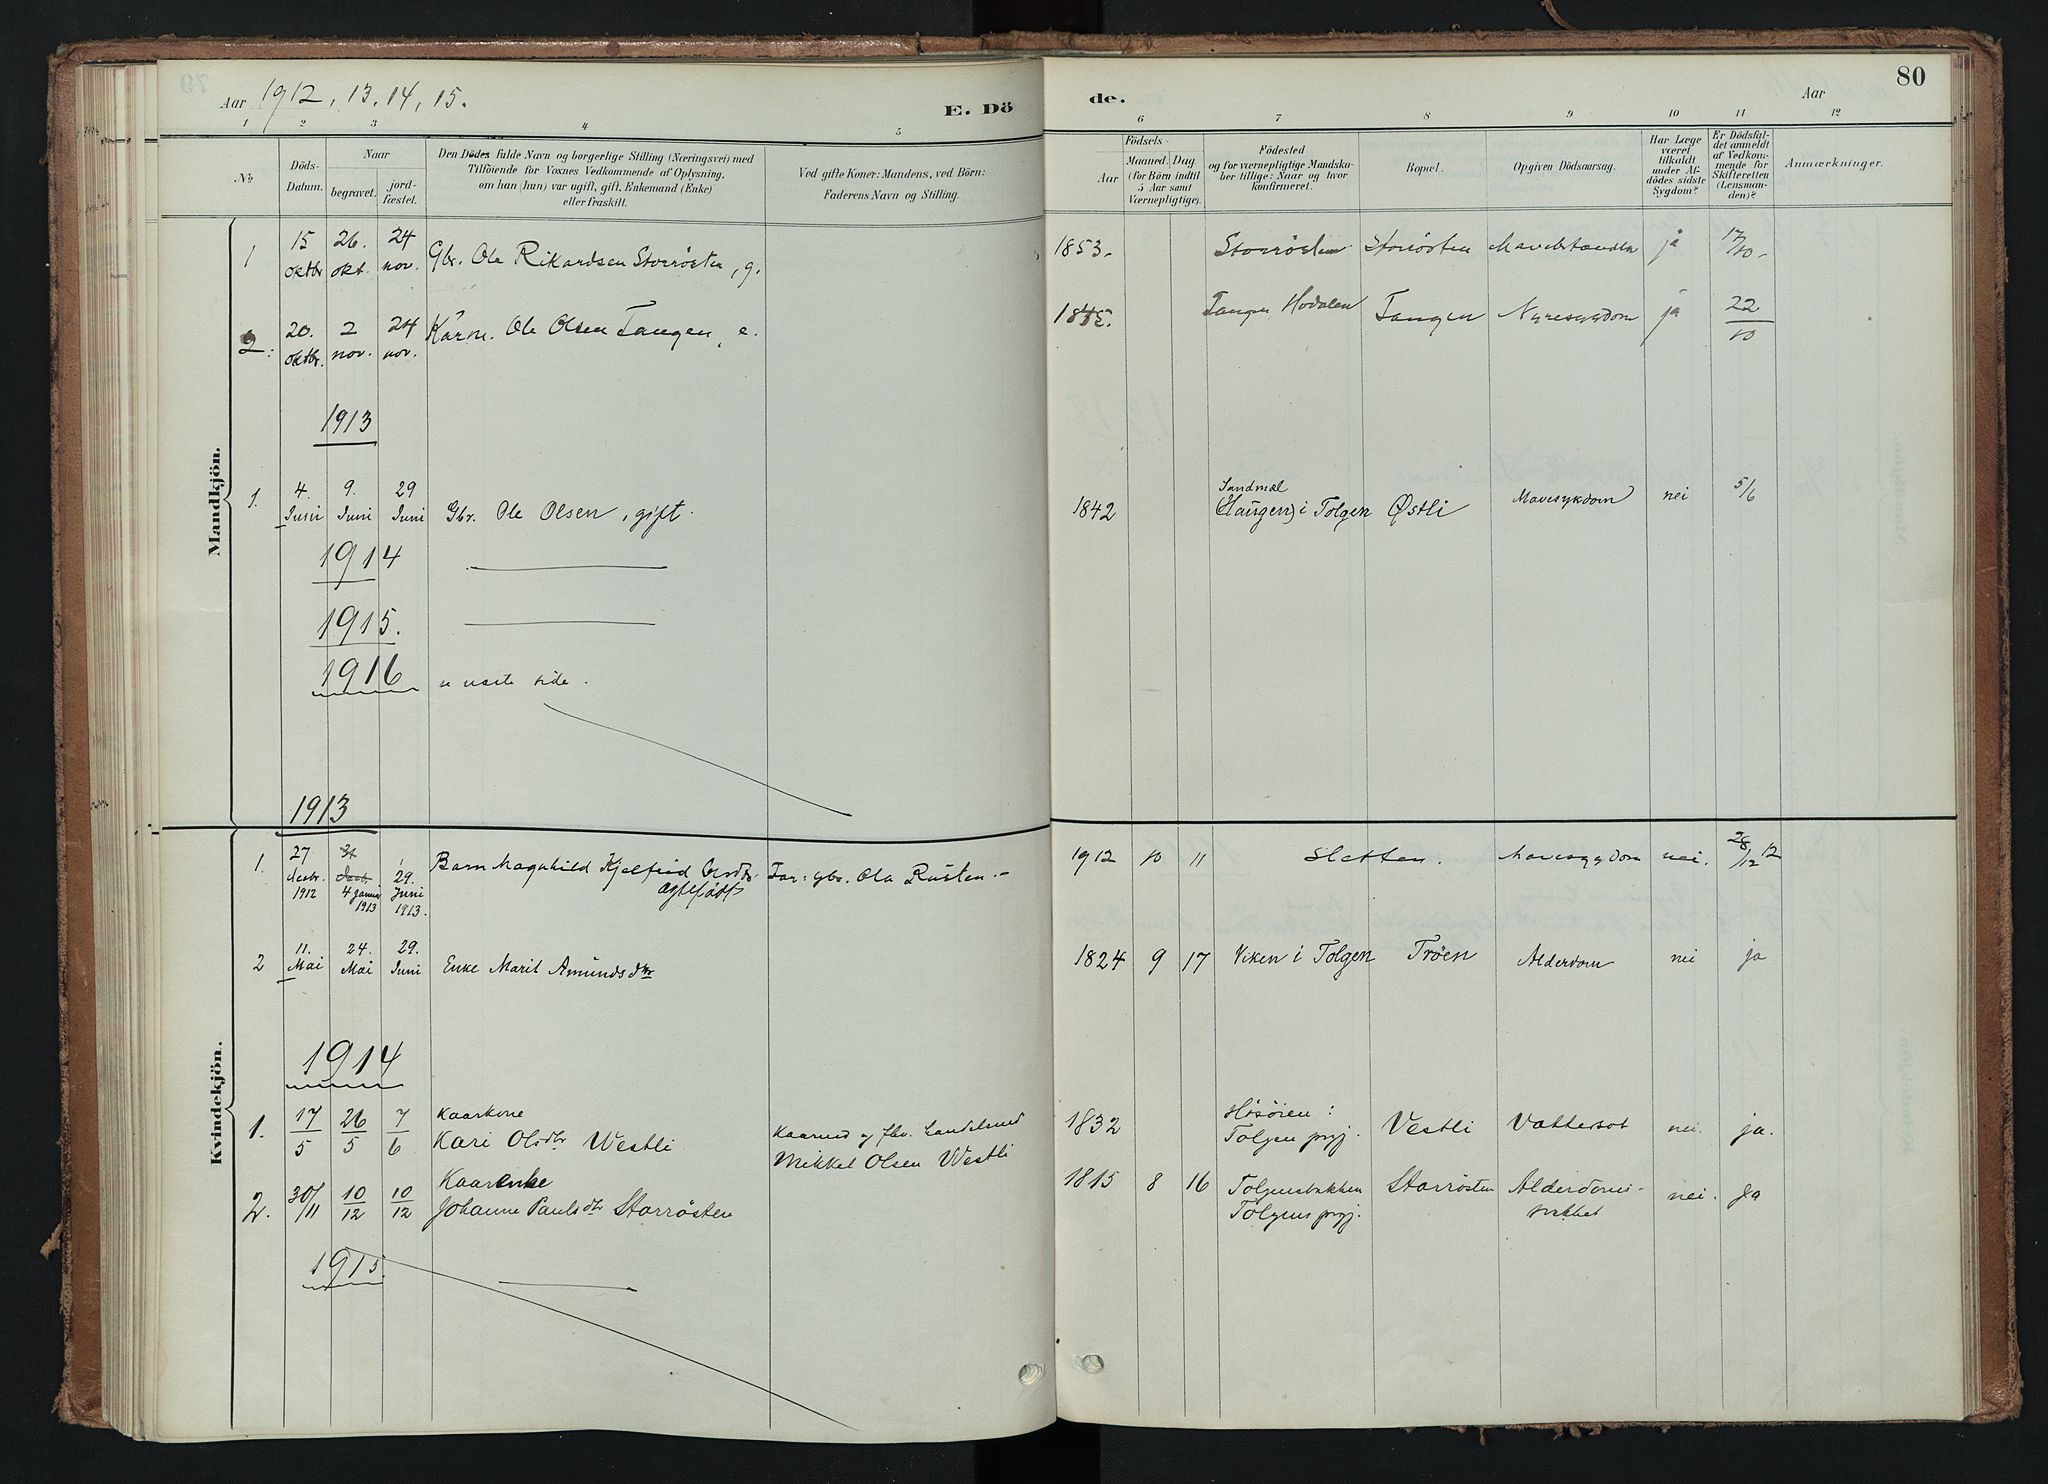 Aar 1912, 13, 14, 15.
E. Dö
de.
Aar
80
1 2 3 4 5 6 7 8 9 10 11 12
№
Döds-Datum.
Naar
begravet.
jord-fæstet.
Den Dødes fulde Navn og borgerlige Stilling (Næringsvei) med
Tilföiende for Voxnes Vedkommende af Oplysning,
om han (hun) var ugift, gift, Enkemand (Enke)
eller fraskilt.
Ved gifte Koner: Mandens, ved Börn:
Faderens Navn og Stilling.
Födsels-
Aar
Maaned. Dag.
(for Börn indtil
5 Aar samt
Værnepligtige).
Födested
og for værnepligtige Mandska-
ber tillige: Naar og hvor
konfirmeret.
Bopæl.
Opgiven Dödsaarsag.
Har Læge
været
tilkaldt
under Af-
dödes sidste
Sygdom?
Er Dödsfal-
det anmeldt
af Vedkom-
mende for
Skifteretten
(Lensman-
den)?
Anmærkninger.
Mandkjön.
1 15 oktbr 26. okt. 24 nov. Gbr. Ole Rikardsen Storrösten, g. 1853 Storrösten Storrösten ja 17/10
2: 20. oktbr. 2 nov. 24 nov. Kårm. Ole Olsen Tangen, e. Tangen Hodalen Tangen Nyresygdom ja 22/10
1913
1. 4. Juni 9. Juni 29 Juni Gbr. Ole Olsen, gift. 1842 Sandmæl (Haugen) i Tolgen Østli Mavesykdom nei 5/6
1914
1915.
1916 næste side.
1913
Kvindekjön.
1. 27 decbr. 1912 31 decb. 4 januar 1913 29. Juni 1913. Barn Magnhild Kjelfrid Olsdtr ægtefödt Far: gbr. Ola Rusten. 1912 10 11 Sletten. Mavesygdom nei. 28/12 12
2 11. Mai 24. Mai 29. Juni Enke Marit Amundsdtr 1824 9 17 Viken i Tolgen Tröen Alderdom nei ja
1914
1. 17/5 26/5 7/6 Kaarkone Kari Olsdtr Westli Kaarmd og fhv. Landelsmd Mikkel Olsen Westli 1832 Hösöien: Tolgen prgj. Vestli Vattersot nei. ja.
2. 30/11 10/12 10/12 Kaarenke Johanne Paulsdtr Storrösten 1815 8 16 Tolgensbakken Tolgens prgj. Storrösten Alderdoms-svakhet nei. Ja
1915.